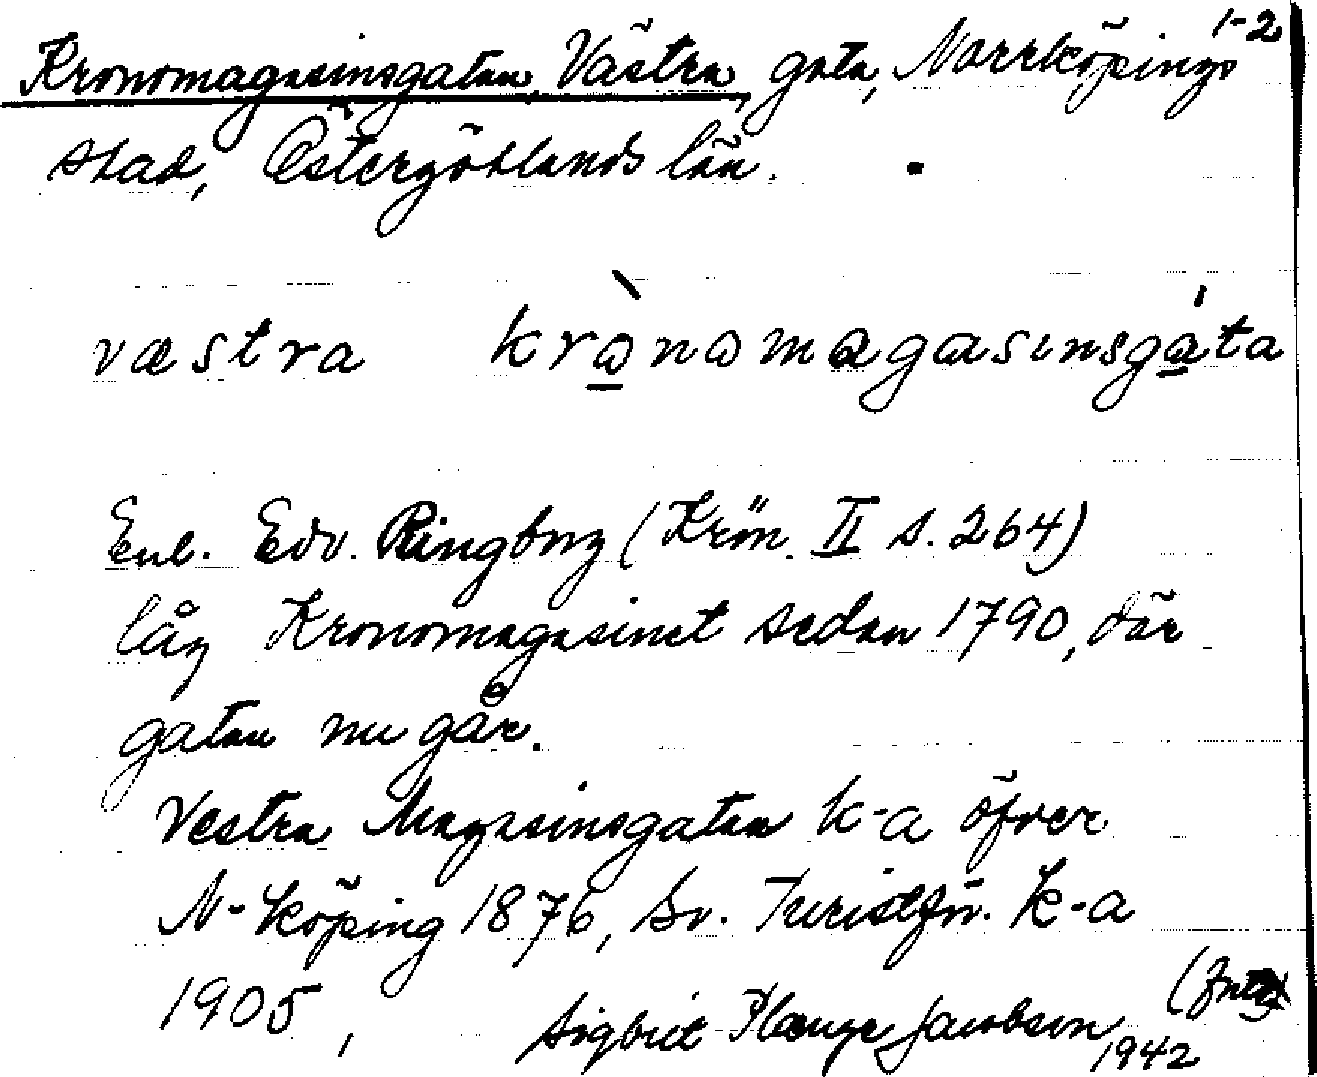 1-2
Kronomagasinsgatan, Västra, gata, Norrköpings
stad, Östergötlands län.
væstra krὼnωmagasinsgáta
Enl. Edv. Ringborg (Krön. II s. 264)
låg Kronomagasinet sedan 1790, där
gatan nu går.
Vestra Magasinsgatan k-a öfver
N-köping 1876, Sv. Turistför. k-a
1905,
Sigbrit Plænge Jacobson
1942